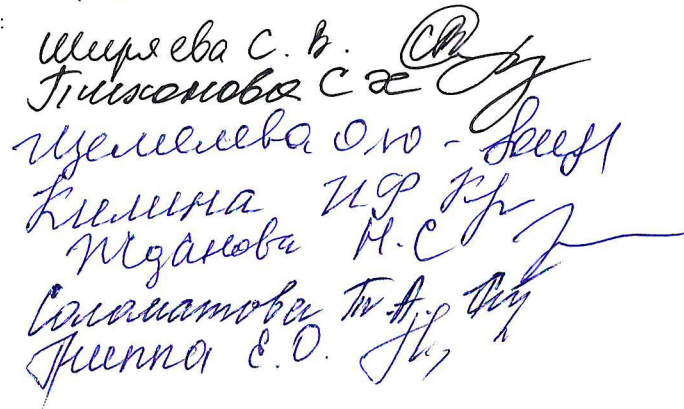 :
Ширяева С. В.
Тихонова С
Щемелева О Ю -
Килина И Ф
Жданова Н. С
Соломатова Т. А.
Липпа Е. О.